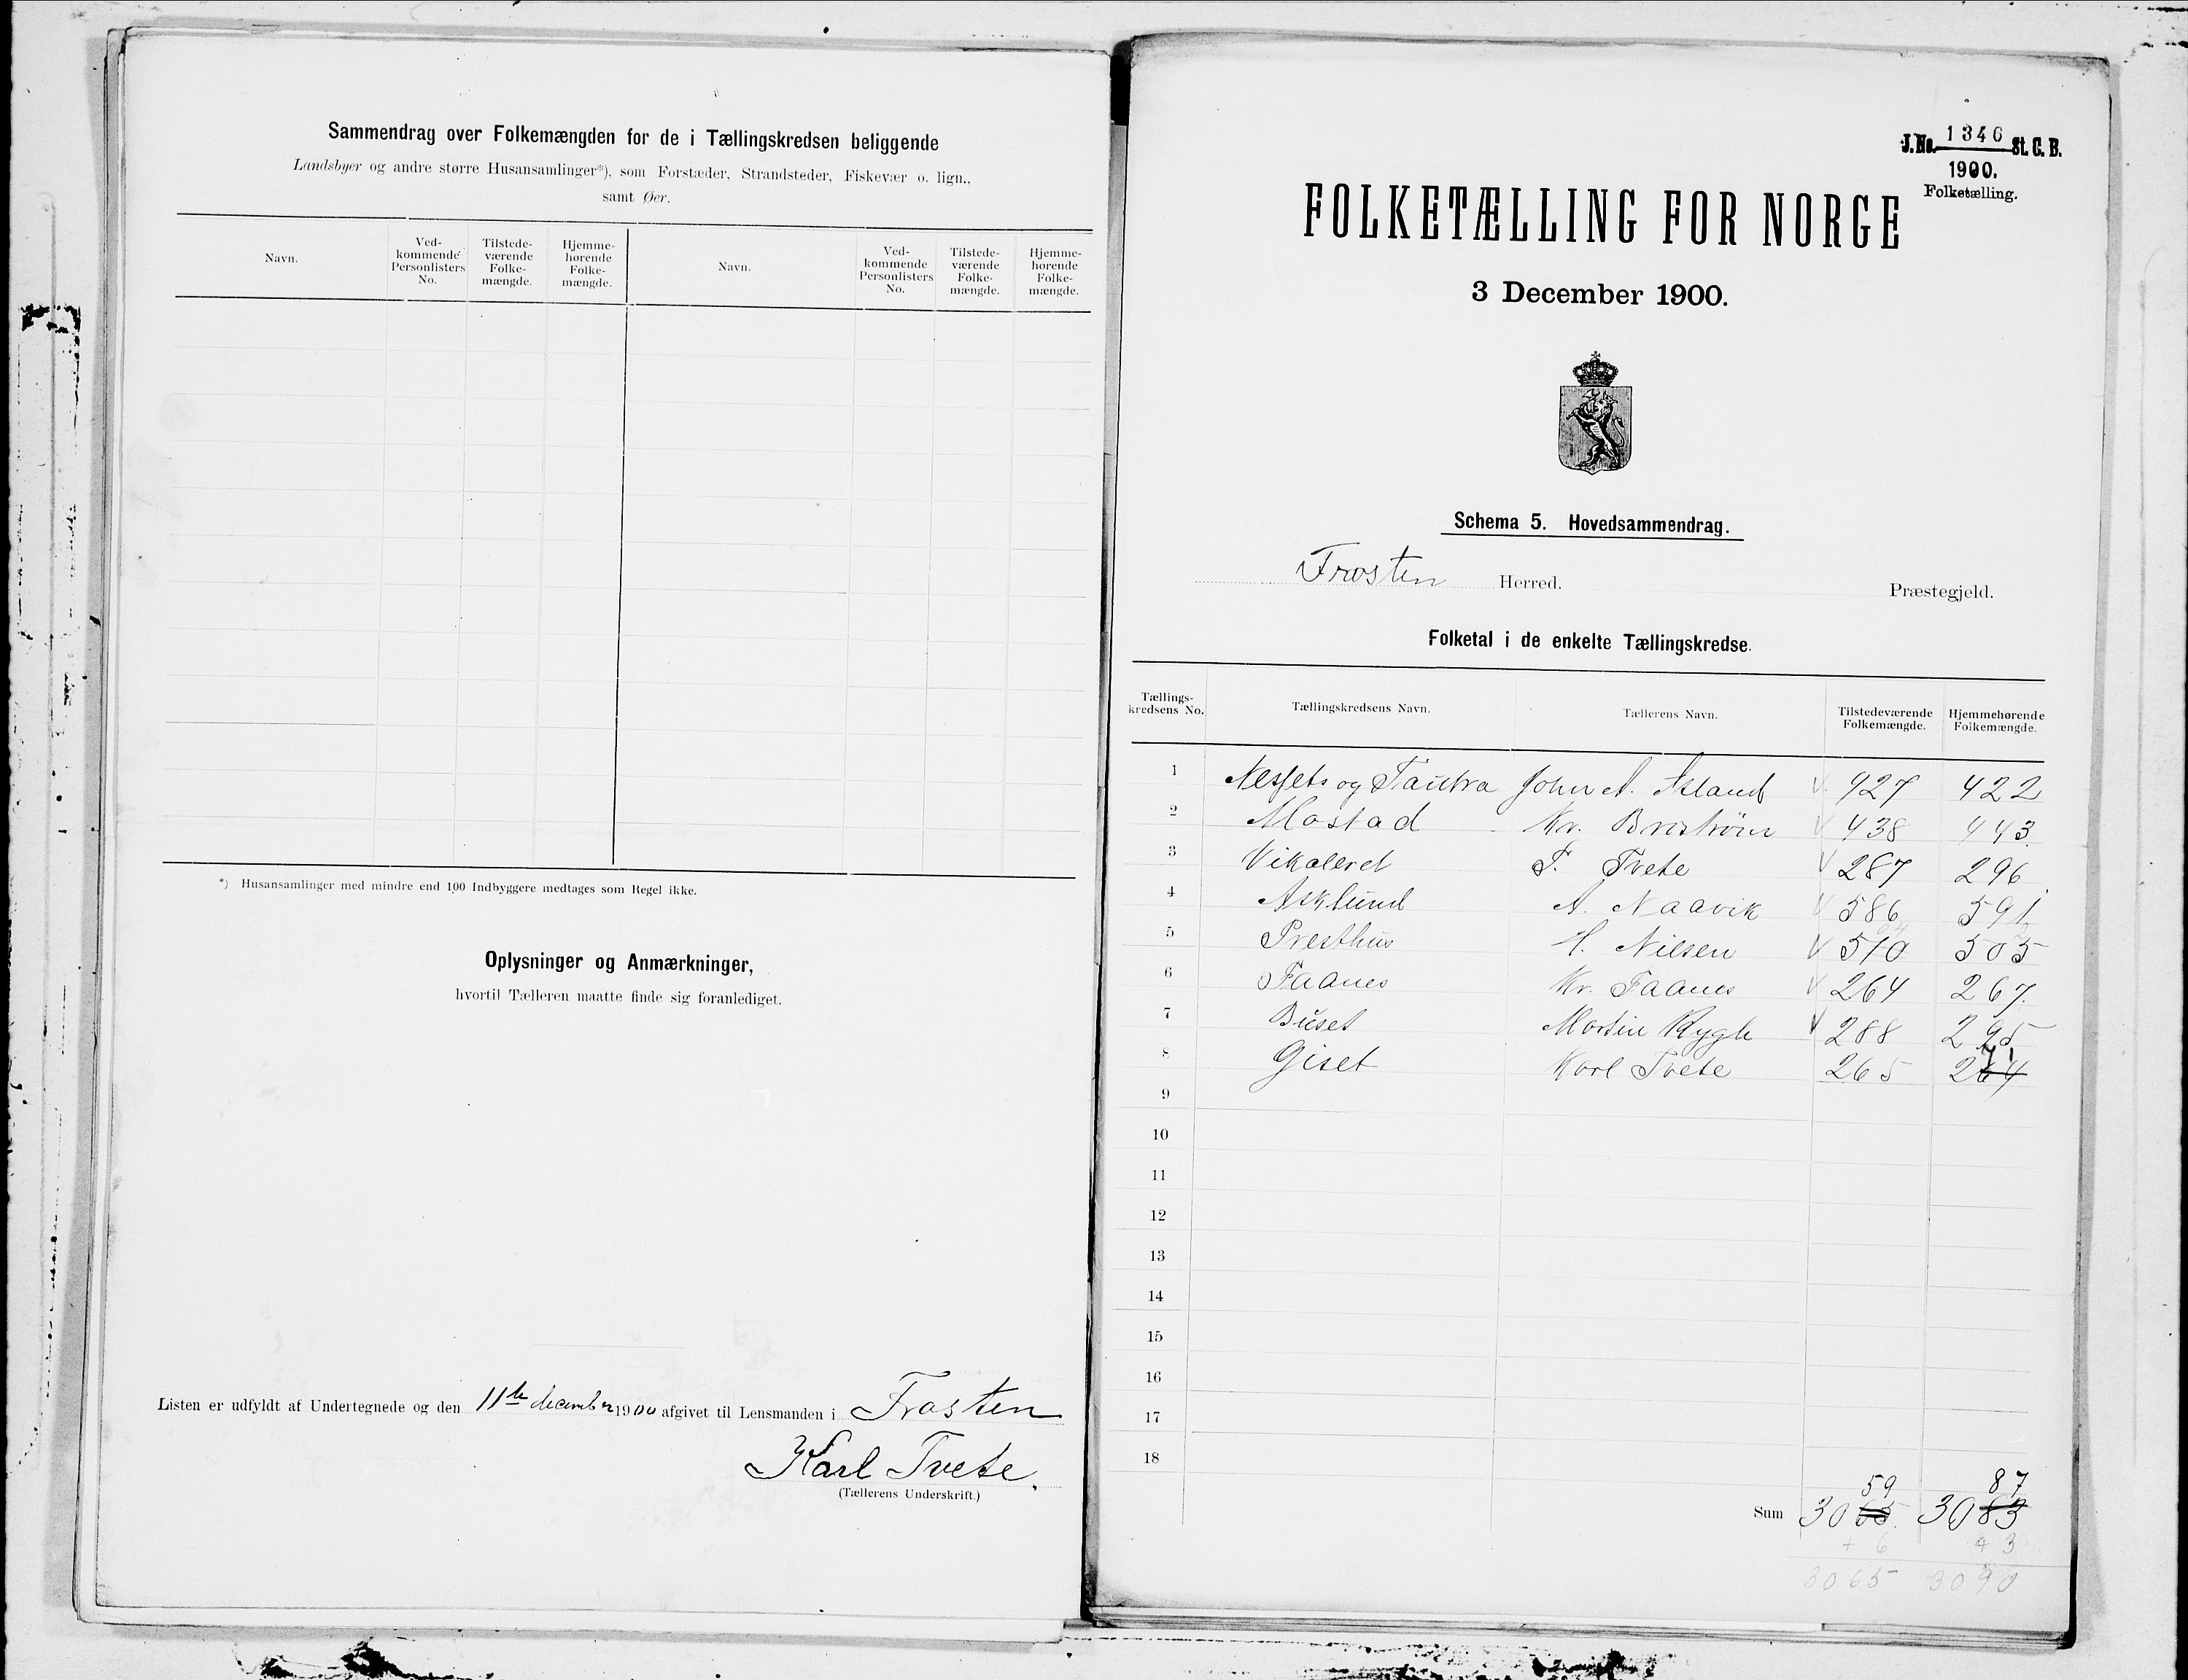 Sammendrag over Folkemængden for de i Tællingskredsen beliggende
Landsbyer og andre større Husansamlinger*), som Forstæder, Strandsteder, Fiskevær o. lign.,
samt Øer.
Navn. Ved-kommende Personlisters No. Tilstede-værende Folke-mængde. Hjemme-hørende Folke-mængde. Navn. Ved-kommende Personlisters No. Tilstede-værende Folke-mængde. Hjemme-hørende Folke-mængde.
*) Husansamlinger med mindre end 100 Indbyggere medtages som Regel ikke.
Oplysninger og Anmærkninger,
hvortil Tælleren maatte finde sig foranlediget.
Listen er udfyldt af Undertegnede og den 11te december 1900 afgivet til Lensmanden i Frosten
Karl Tvete.
(Tællerens Underskrift.)
J.No. 1346 St. C. B.
1900.
Folketælling.
FOLKETÆLLING FOR NORGE
3 December 1900.
Schema 5. Hovedsammendrag.
Frosten Herred. Præstegjeld.
Folketal i de enkelte Tællingskredse.
Tællings-kredsens No. Tællingskredsens Navn. Tællerens Navn. Tilstedeværende Folkemængde. Hjemmehørende Folkemængde.
1 og Tautra John A. 427 422
2 Mostad Kr. 438 443
3 T. Tvete 287 296
4 Asklund A. Naavik 586 591
5 Presthus Nilsen 510 505
6 Faanes Kr. Faanes 264 267
7 Buset Martin Rygh 288 295
8 Giset Karl Tvete 265 264
9
10
11
12
13
14
15
16
17
18
59 87
Sum 3065 3083
+ 6 + 3
3065 3090